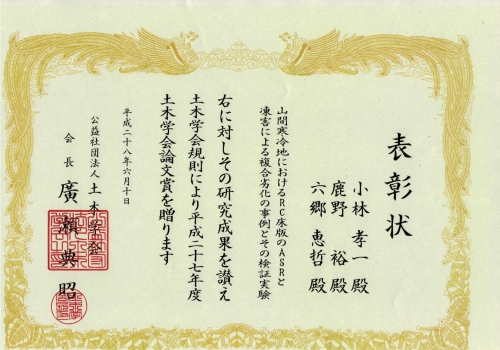 表彰状
小林 孝一 殿
鹿野 裕 殿
六郷 恵哲 殿
山間寒冷地におけるRC床版のASRと
凍害による複合劣化の事例とその検証実験
右に対しその研究成果を讃え
土木学会規則により平成二十七年度
土木学会論文賞を贈ります
平成二十八年六月十日
公益社団法人 土木学会
会長 廣瀬典昭